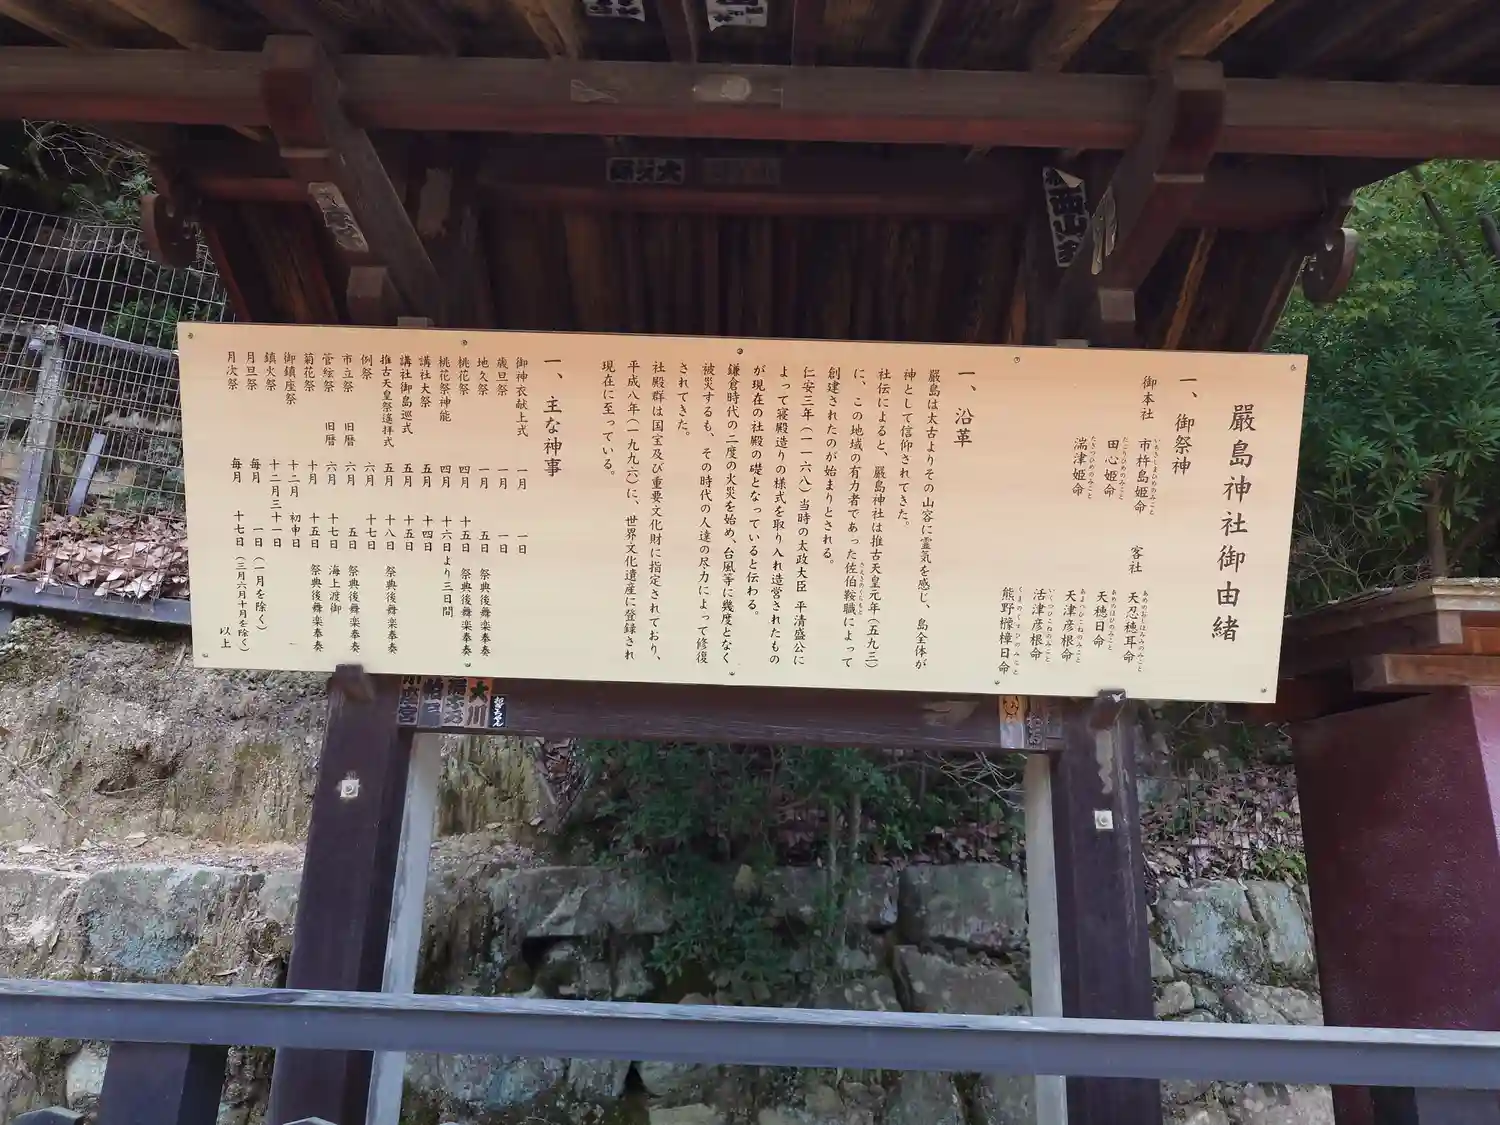 嚴島神社御由緒
一、御祭神
御本社 市杵島姫命 客社 天忍穂耳命
いちきしまひめのみこと あめのおしほみみのみこと
田心姫命 天穂日命
たごりひめのみこと あめのほひのみこと
湍津姫命 天津彦根命
たぎつひめのみこと あまつひこねのみこと
活津彦根命
いくつひこねのみこと
熊野櫲樟日命
くまのくすびのみこと
一、沿革
嚴島は太古よりその山容に霊気を感じ、島全体が
神として信仰されてきた。
社伝によると、嚴島神社は推古天皇元年(五九三)
に、この地域の有力者であった佐伯鞍職によって
さえきのくらもと
創建されたのが始まりとされる。
仁安三年(一一六八)当時の太政大臣 平清盛公に
よって寝殿造りの様式を取り入れ造営されたもの
が現在の社殿の礎となっていると伝わる。
鎌倉時代の二度の火災を始め、台風等に幾度となく
被災するも、その時代の人達の尽力によって修復
されてきた。
社殿群は国宝及び重要文化財に指定されており、
平成八年(一九九六)に、世界文化遺産に登録され
現在に至っている。
一、主な神事
御神衣献上式 一月 一日
歳旦祭 一月 一日
地久祭 一月 五日 祭典後舞楽奉奏
桃花祭 四月 十五日 祭典後舞楽奉奏
桃花祭神能 四月 十六日より三日間
講社大祭 五月 十四日
講社御島巡式 五月 十五日
推古天皇祭遙拝式 五月 十八日 祭典後舞楽奉奏
例祭 六月 十七日
市立祭 旧暦 六月 五日 祭典後舞楽奉奏
管絃祭 旧暦 六月 十七日 海上渡御
菊花祭 十月 十五日 祭典後舞楽奉奏
御鎮座祭 十二月 初申日
鎮火祭 十二月三十一日
月旦祭 毎月 一日(一月を除く)
月次祭 毎月 十七日(三月六月十月を除く)
以上
大川